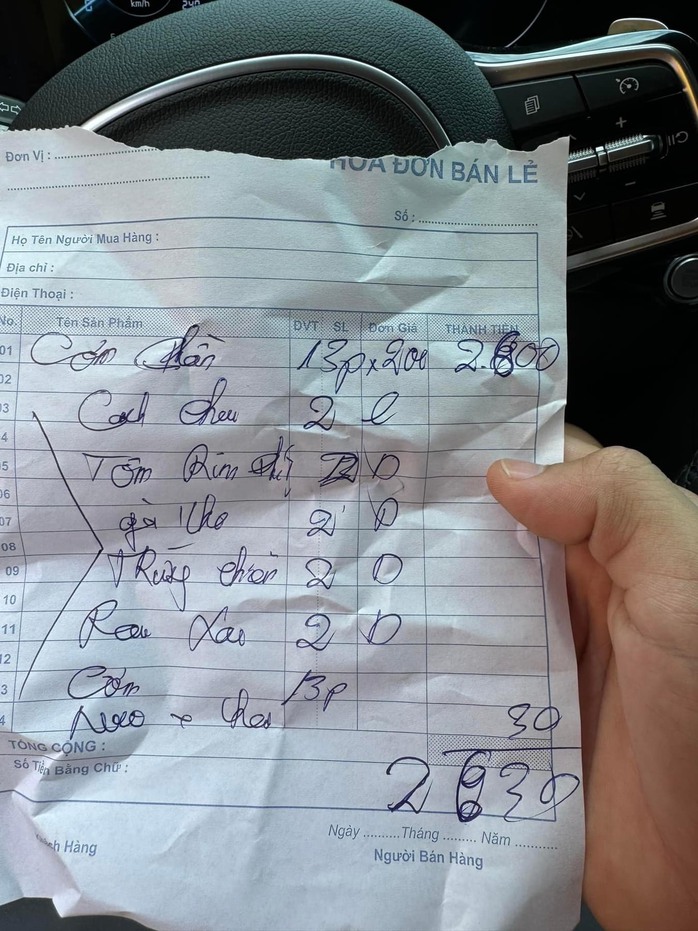 km/h
Đơn Vị :
HÓA ĐƠN BÁN LẺ
Số :
Họ Tên Người Mua Hàng :
Địa chỉ :
Điện Thoại :
No. Tên Sản Phẩm ĐVT SL Đơn Giá THÀNH TIỀN
01 Cơm phần 13p x 200 2.600
02
03 Canh chua 2
4
05 Tôm Rim 2
06
07 gà kho 2
08
09 Trứng chiên 2
10
11 Rau Xào 2
12
3 Cơm 13p
4 30
TỔNG CỘNG :
Số Tiền Bằng Chữ : 2630
Ngày Tháng Năm
Hàng Người Bán Hàng